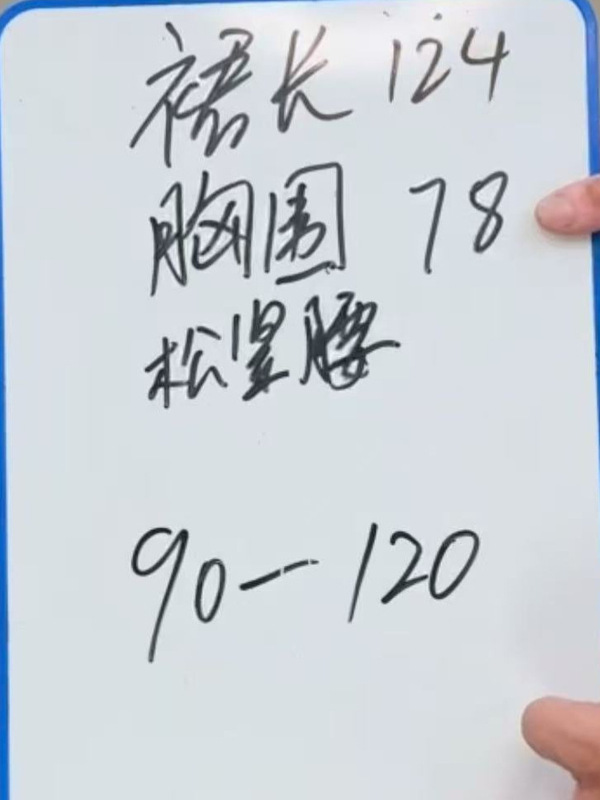 裙长 124
胸围 78
松紧腰
90—120